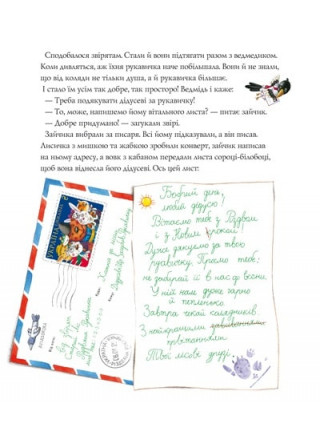 Сподобалося звірятам. Стали й вони підтягати разом з ведмедиком.
Коли дивляться, аж їхня рукавичка наче побільшала. Вони й не знали,
що від коляди не тільки душа, а й рукавичка більшає.
І стало їм усім так добре, так просторо! Ведмідь і каже:
— Треба подякувати дідусеві за рукавичку!
— То, може, напишемо йому вітального листа? — питає зайчик.
— Добре придумано! — загукали звірі.
Зайчика вибрали за писаря. Всі йому підказували, а він писав.
Лисичка з мишкою та жабкою зробили конверт, зайчик написав
на ньому адресу, а вовк з кабаном передали листа сороці-білобоці,
щоб вона віднесла його дідусеві. Ось цей лист:
УКРАЇНА
Добрий день,
любий дідусю!
Вітаємо тебе з Різдвом
і з Новим роком!
Дуже дякуємо за твою
рукавичку. Просимо тебе:
не забирай її в нас до весни.
У ній нам дуже гарно
й тепленько.
Завтра чекай колядників.
З найкращими
побажаннями
Твої лісові друзі.